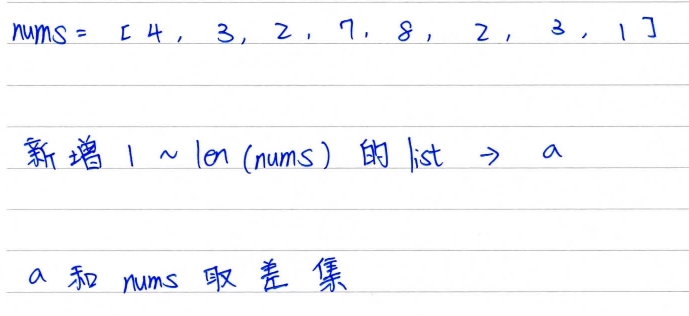 nums = [4, 3, 2, 7, 8, 2, 3, 1]
新增 1 ~ len (nums) 的 list → a
a 和 nums 取差集